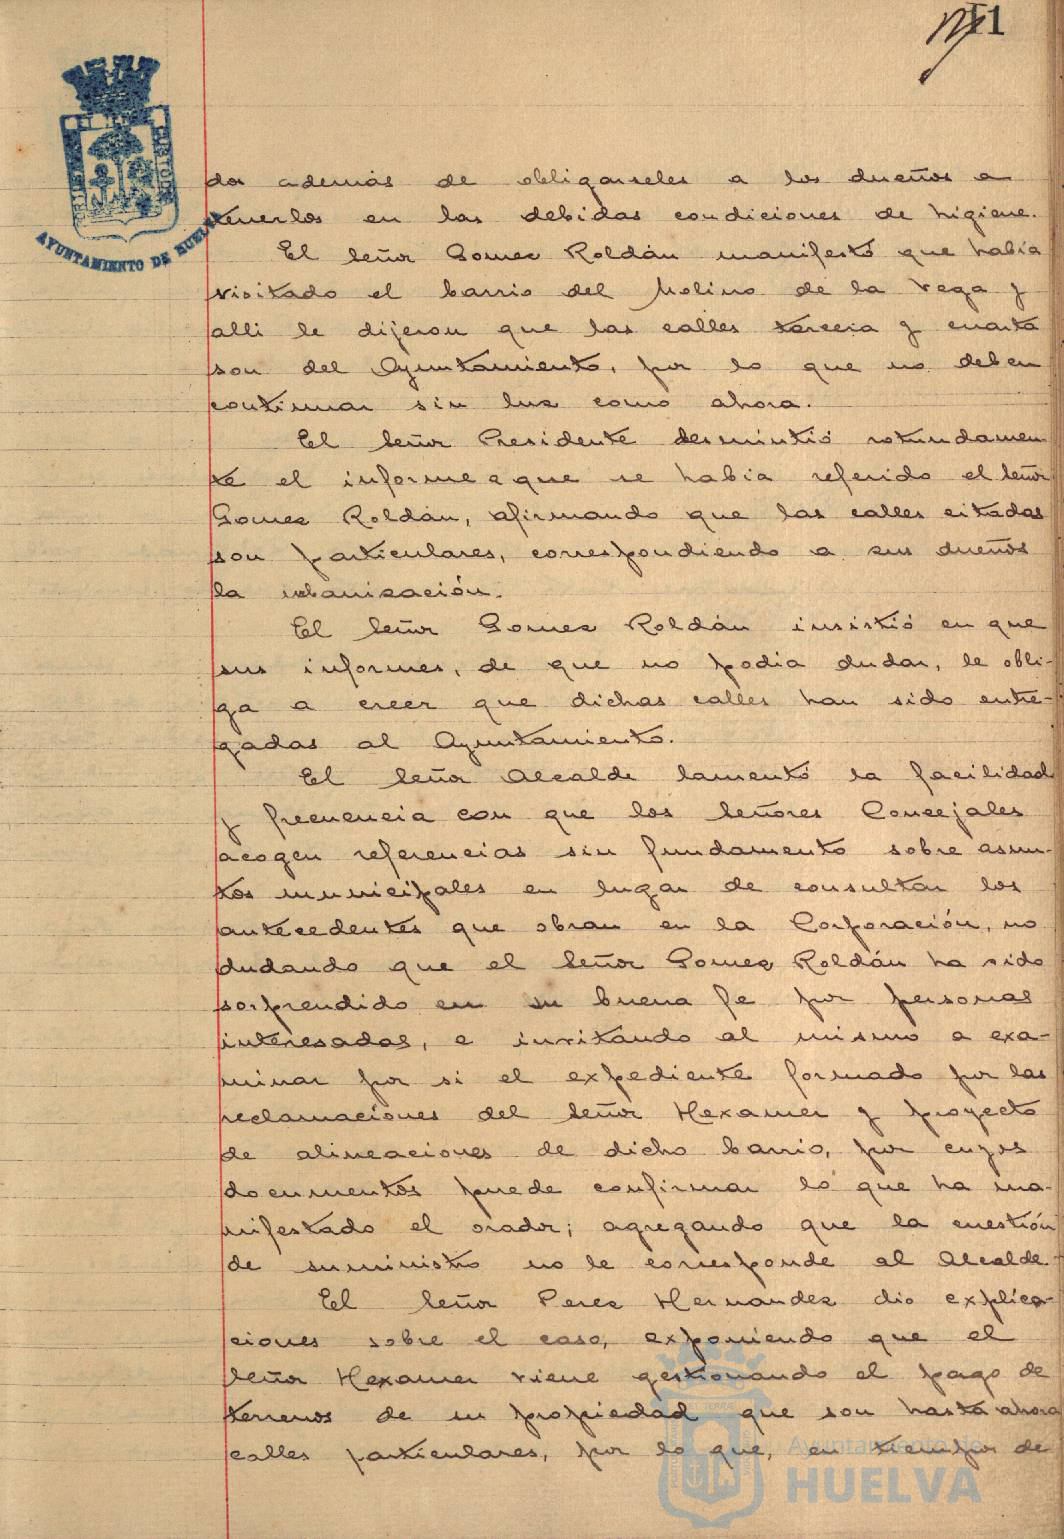 11
AYUNTAMIENTO DE HUELVA
dos además de obligárseles a los dueños a
tenerlos en las debidas condiciones de higiene.
El Señor Gomez Roldán manifestó que había
visitado el barrio del Molino de la Vega y
alli le dijeron que las calles tercera y cuarta
son del Ayuntamiento, por lo que no deben
continuar sin luz como ahora.
El Señor Presidente desmintió rotundamen
te el informe a que se habia referido el Señor
Gomez Roldán, afirmando que las calles citadas
son particulares, correspondiendo a sus dueños
la urbanización.
El Señor Gomez Roldán insistió en que
sus informes, de que no podia dudar, le obli-
ga a creer que dichas calles han sido entre-
gadas al Ayuntamiento.
El Señor Alcalde lamentó la facilidad
y frecuencia con que los Señores Concejales
acogen referencias sin fundamento sobre asun-
tos municipales en lugar de consultar los
antecedentes que obran en la Corporación, no
dudando que el Señor Gomez Roldán ha sido
sorprendido en su buena fe por personas
interesadas, e invitando al mismo a exa-
minar por si el expediente formado por las
reclamaciones del Señor Hexamer y proyecto
de alineaciones de dicho barrio, por cuyos
documentos puede confirmar lo que ha ma-
nifestado el orador; agregando que la cuestión
de suministro no le corresponde al Alcalde.
El Señor Perez Hernandez dio explica-
ciones sobre el caso, exponiendo que el
Señor Hexamer viene gestionando el pago de
terrenos de su propiedad que son hasta ahora
calles particulares, por lo que, en tiempos de
Ayuntamiento de
HUELVA